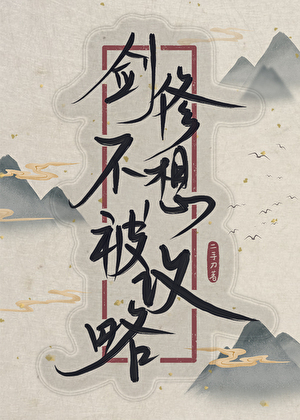 剑修不想被攻略
二手刀著